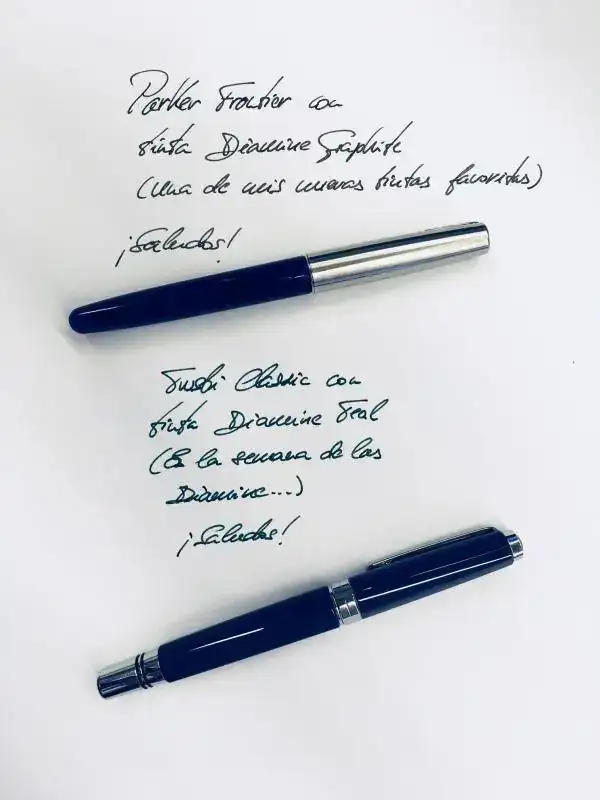 Parker Frontier con
tinta Diamine Graphite
(una de mis nuevas tintas favoritas)
¡Saludos!
Twsbi Classic con
tinta Diamine Teal
(Es la semana de las
Diamine...)
¡Saludos!